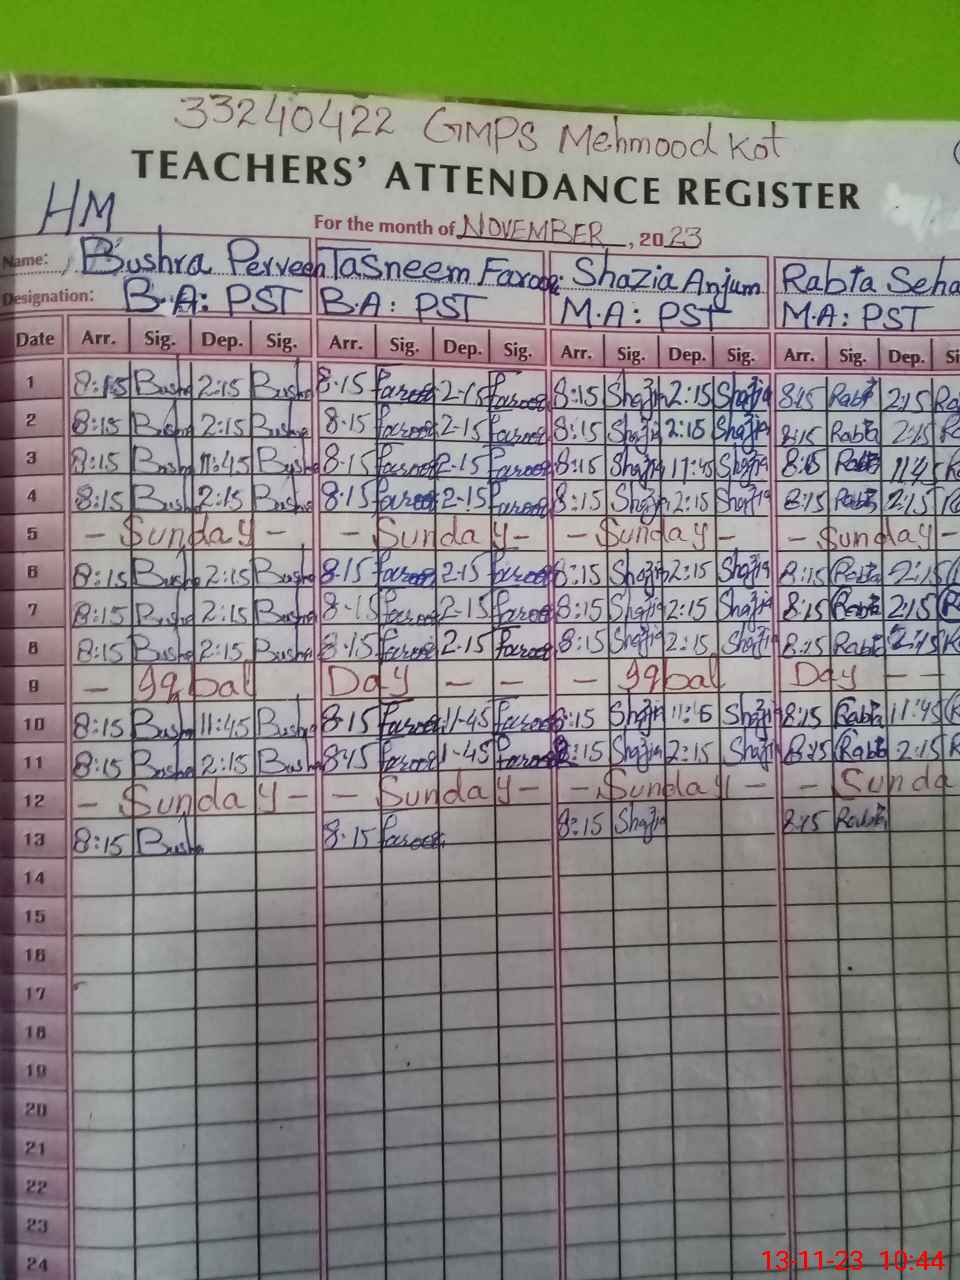 33240422 GMPS Mehmood Kot
TEACHERS' ATTENDANCE REGISTER
HM
For the month of NOVEMBER, 2023
Name: Bushra Perveen Tasneem Farooq Shazia Anjum Rabia Seha
Designation: B.A: PST B.A: PST M.A: PST M.A: PST
Date Arr. Sig. Dep. Sig. Arr. Sig. Dep. Sig. Arr. Sig. Dep. Sig. Arr. Sig. Dep. Si
1 8:15 Bush 2:15 Bush 8-15 farooq 2-15 farooq 8:15 Shazia 2:15 Shazia 8:15 Rabia 2:15 Ra
2 8:15 Bush 2:15 Bush 8-15 farooq 2-15 farooq 8:15 Shazia 2:15 Shazia 8:15 Rabia 2:15
3 8:15 Bush 11:45 Bush 8-15 farooq 2-15 farooq 8:15 Shazia 11:45 Shazia 8:15 Rabia 11:45
4 8:15 Bush 2:15 Bush 8-15 farooq 2-15 farooq 8:15 Shazia 2:15 Shazia 8:15 Rabia 2:15
5 - Sunday - - Sunday - - Sunday - - Sunday -
6 8:15 Bush 2:15 Bush 8-15 farooq 2-15 farooq 8:15 Shazia 2:15 Shazia 8:15 Rabia 2:15
7 8:15 Bush 2:15 Bush 8-15 farooq 2-15 farooq 8:15 Shazia 2:15 Shazia 8:15 Rabia 2:15
8 8:15 Bush 2:15 Bush 8-15 farooq 2-15 farooq 8:15 Shazia 2:15 Shazia 8:15 Rabia 2:15
9 - Iqbal Day - - - Iqbal Day - -
10 8:15 Bush 11:45 Bush 8-15 farooq 11-45 farooq 8:15 Shazia 11:45 Shazia 8:15 Rabia 11:45
11 8:15 Bush 2:15 Bush 8-15 farooq 1-45 farooq 8:15 Shazia 2:15 Shazia 8:15 Rabia 2:15
12 - Sunday - - Sunday - - Sunday - - Sunda
13 8:15 Bush 8-15 farooq 8:15 Shazia 8:15 Rabia
14
15
16
17
18
19
20
21
22
23
24
13-11-23 10:44